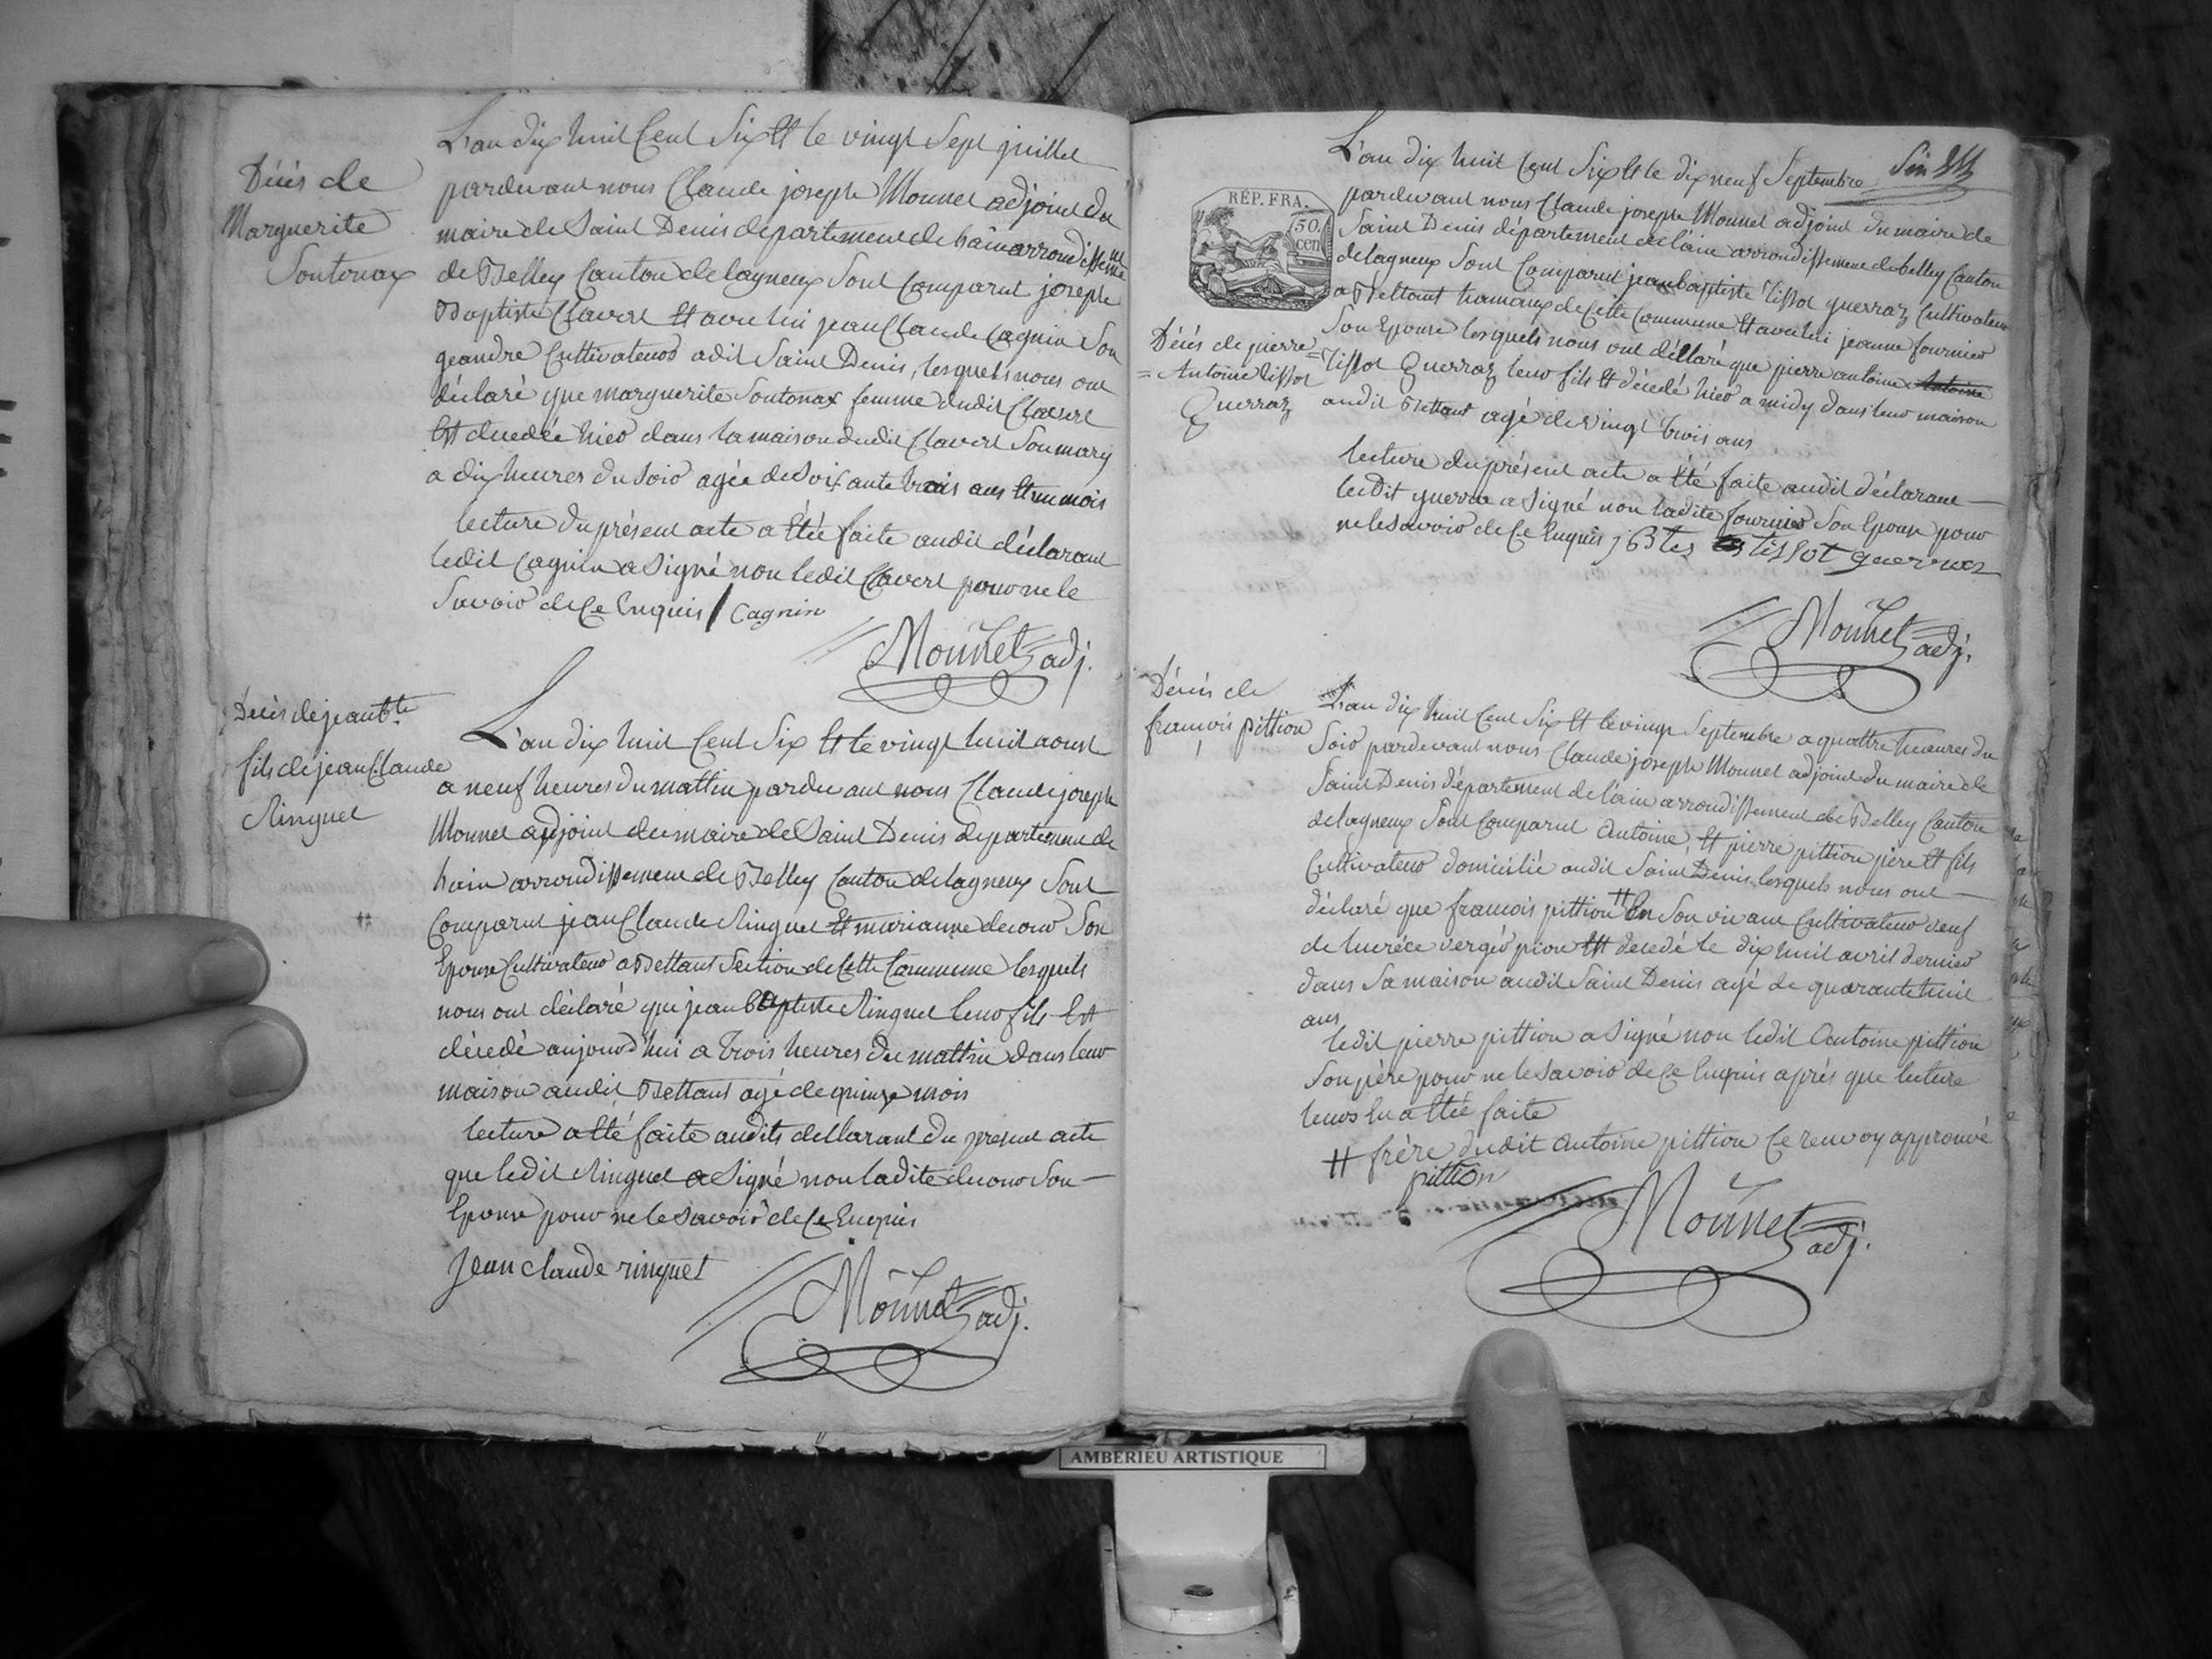 Décès de
Marguerite
Soutonax
L'an dix huit Cent Six Et le vingt Sept juillet
pardevant nous Claude joseph Monnet adjoint du
maire de Saint Denis département de hain arrondissement
de Belley Canton de lagneux Sont Comparut joseph
Baptiste Clavere Et avec lui jean Claude Cagnin Son
geandre Cultivateurs a dit Saint Denis, lesquels nous ont
déclaré que marguerite Soutonax femme dudit Clavere
Est decedée hier dans la maison dudit Clavere Son mary
a dix heures du soir agée de Soixante trois ans Et un mois
lecture du présent acte a Été faite audit déclarant
ledit Cagnin a Signé non ledit Clavere pour ne le
Savoir de Ce Enquis / Cagnin
Monnet adj.
Décès de jean Bte
fils de jean Claude
Ringuet
L'an dix huit Cent Six Et le vingt huit aoust
a neuf heures du mattin pardevant nous Claude joseph
Monnet adjoint du maire de Saint Denis departement de
hain arrondissement de Belley Canton de lagneux Sont
Comparut jean Claude Ringuet Et marianne decour Son
Epouse Cultivateur a Bettant Section de Cette Commune lesquels
nous ont déclaré que jean baptiste Ringuet leur fils Est
décedé aujourd'hui a trois heures du mattin dans leur
maison audit Bettant agé de quinze mois
lecture a Été faite audits déclarant du present acte
que ledit Ringuet a Signé non ladite decour Son
Epouse pour ne le savoir de Ce Enquis
Jean claude ringuet
Monnet adj.
L'an dix huit Cent Six Et le dix neuf Septembre
RÉP. FRA.
50.
cen
pardevant nous Claude joseph Monnet adjoint du maire de
Saint Denis département de l'ain arrondissement de belley Canton
de lagneux Sont Comparut jean baptiste Tissot guerraz Cultivateur
a Bettant hamaux de Cette Commune Et avec lui jeanne fournier
Son Epouse lesquels nous ont déclaré que pierre antoine Antoine
Décès de pierre
= Antoine tissot
Querraz
Tissot Querraz leur fils Et décedé hier a midy dans leur maison
audit Bettant agé de vingt trois ans
lecture du présent acte a Été faite audit déclarant
ledit guerraz a Signé non ladite fournier Son Epouse pour
ne le savoir de Ce Enquis j Btes tissot guerraz
Monnet adj.
Décès de
françois pittion
L'an dix huit Cent Six Et le vingt Septembre a quattre heures du
Soir pardevant nous Claude joseph Monnet adjoint du maire de
Saint Denis département de l'ain arrondissement de Belley Canton
de lagneux Sont Comparut Antoine, Et pierre pittion père Et fils
Cultivateur domicilié audit Saint Denis, lesquels nous ont
déclaré que françois pittion # En Son vivant Cultivateur veuf
de lucréce vergér pion Est decedé le dix huit avril dernier
dans Sa maison audit Saint Denis agé de quarante huit
ans
ledit pierre pittion a Signé non ledit Antoine pittion
Son père pour ne le savoir de Ce Enquis aprés que lecture
leurs En a Été faite
# frère dudit Antoine pittion Ce renvoy approuvé
pittion
Monnet adj.
AMBERIEU ARTISTIQUE